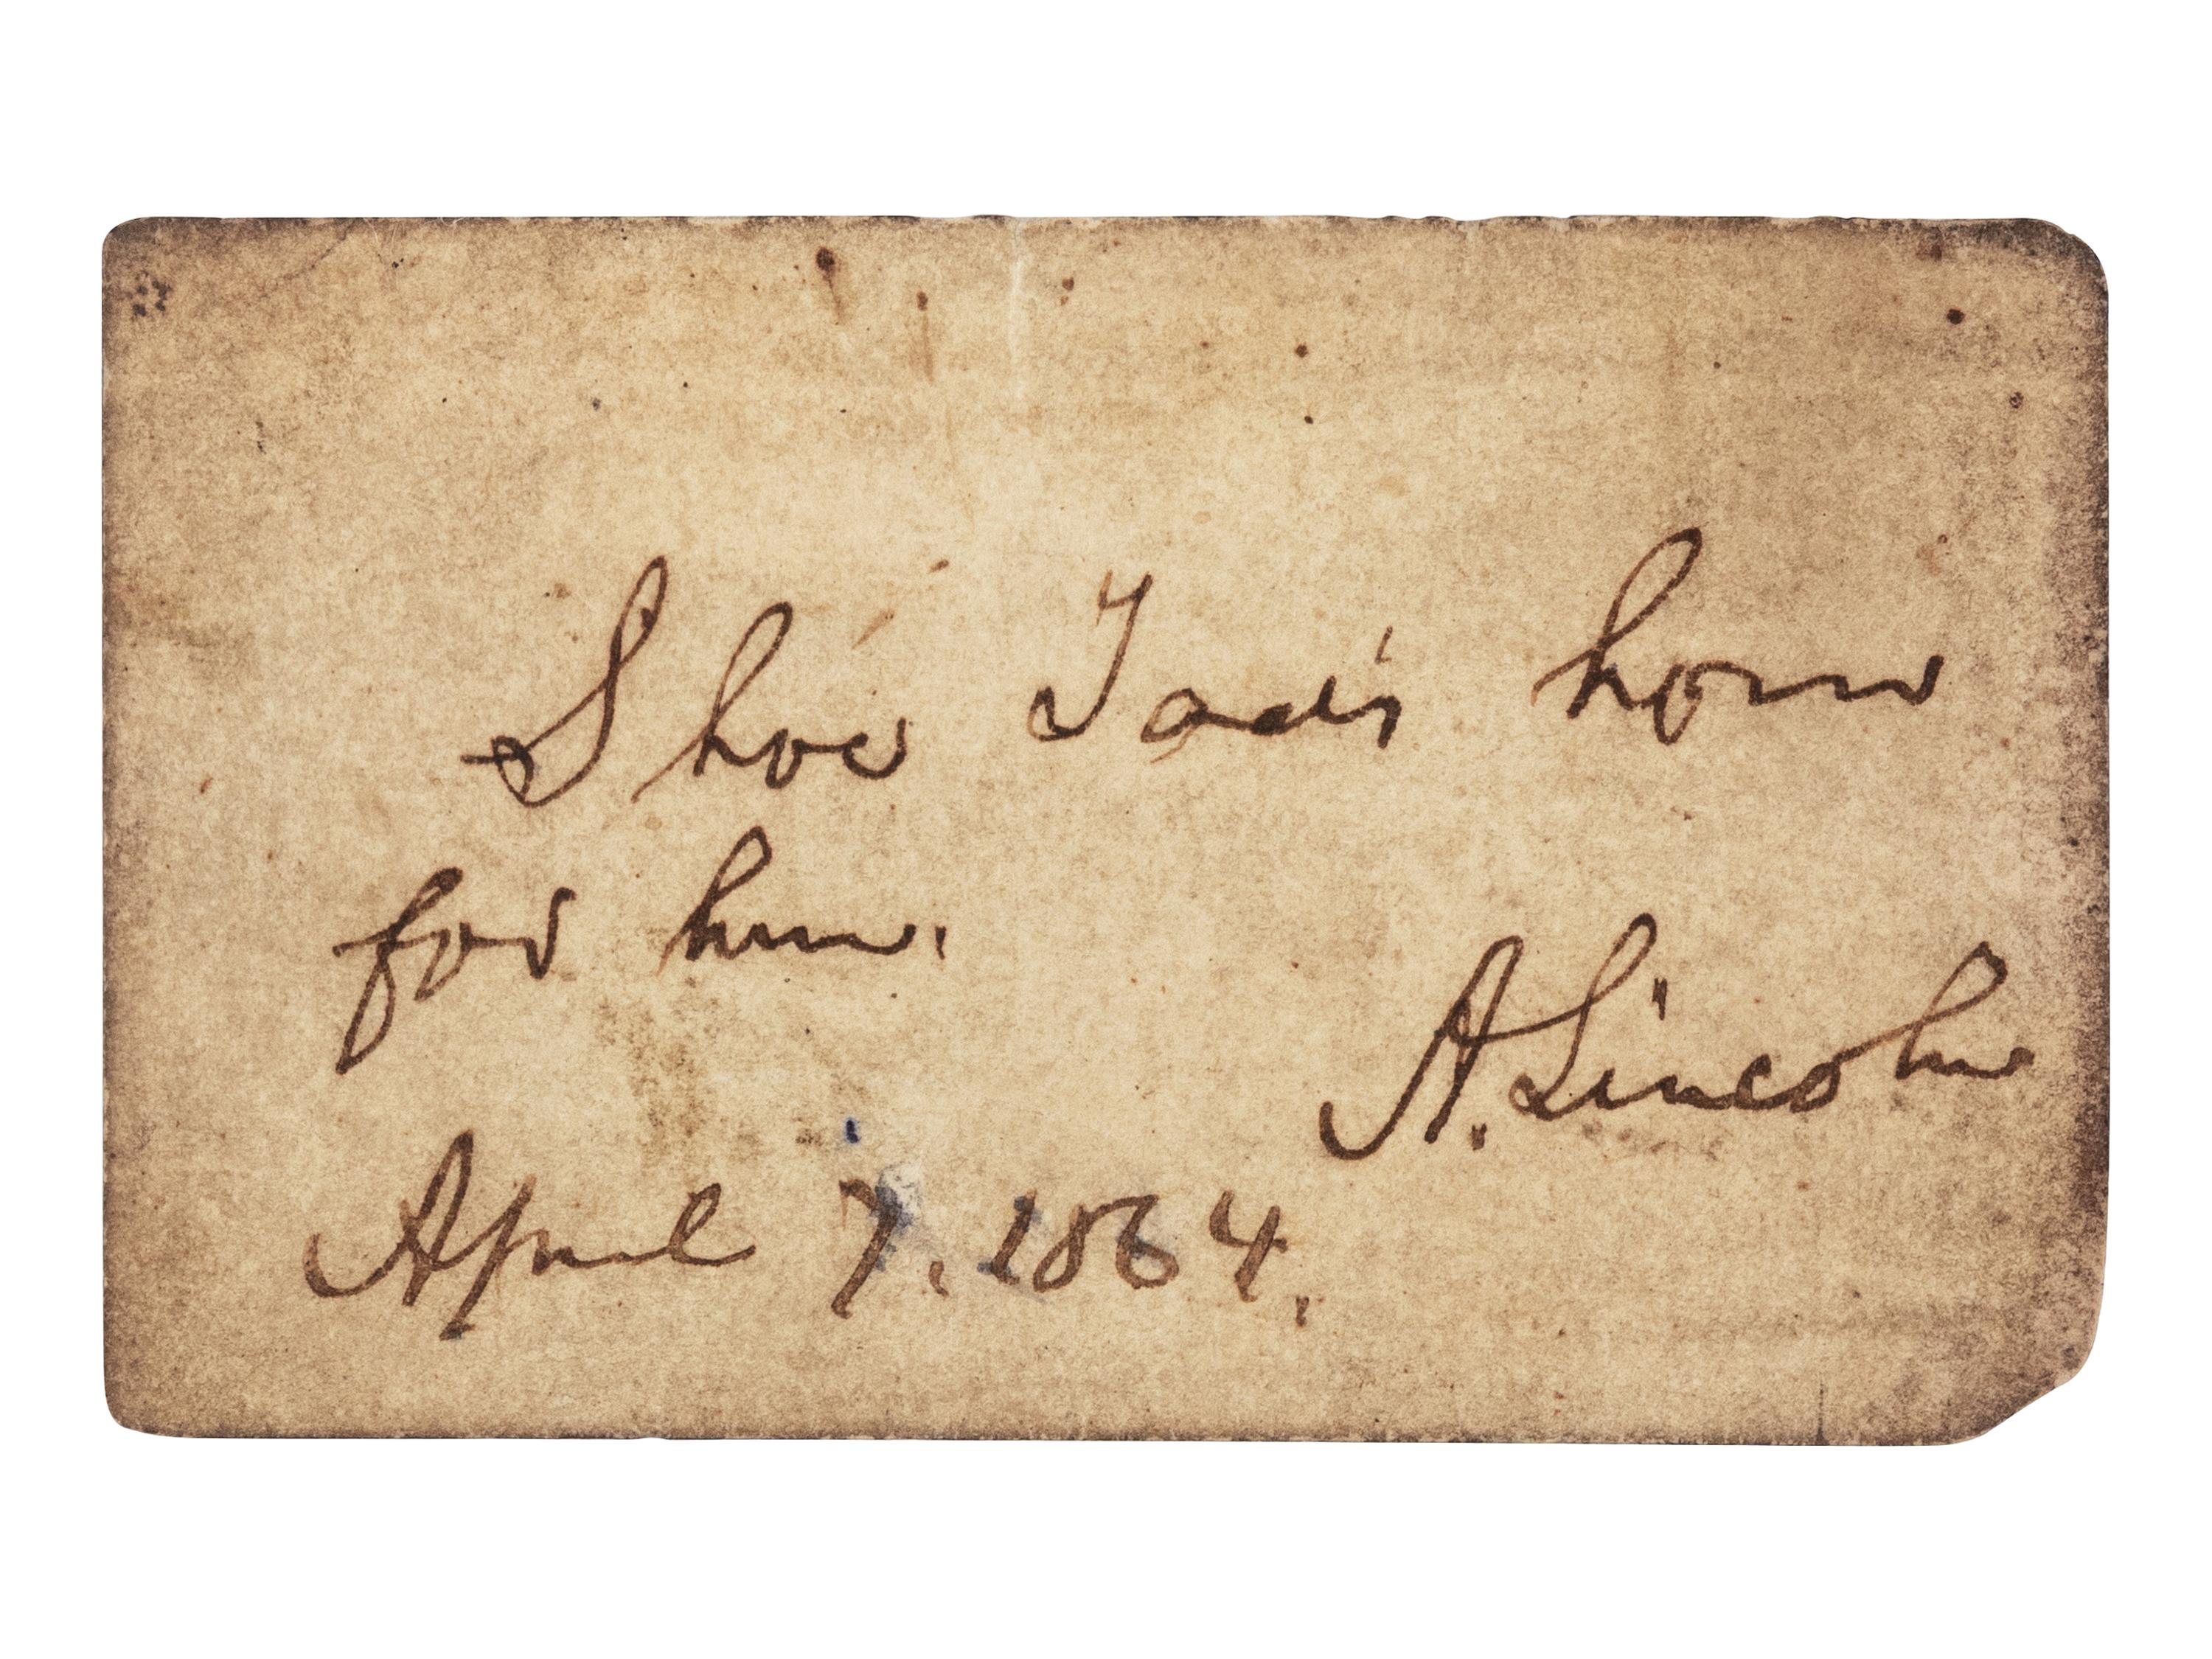 Shoe Tad's horse
for him.
A. Lincoln
April 7. 1864.